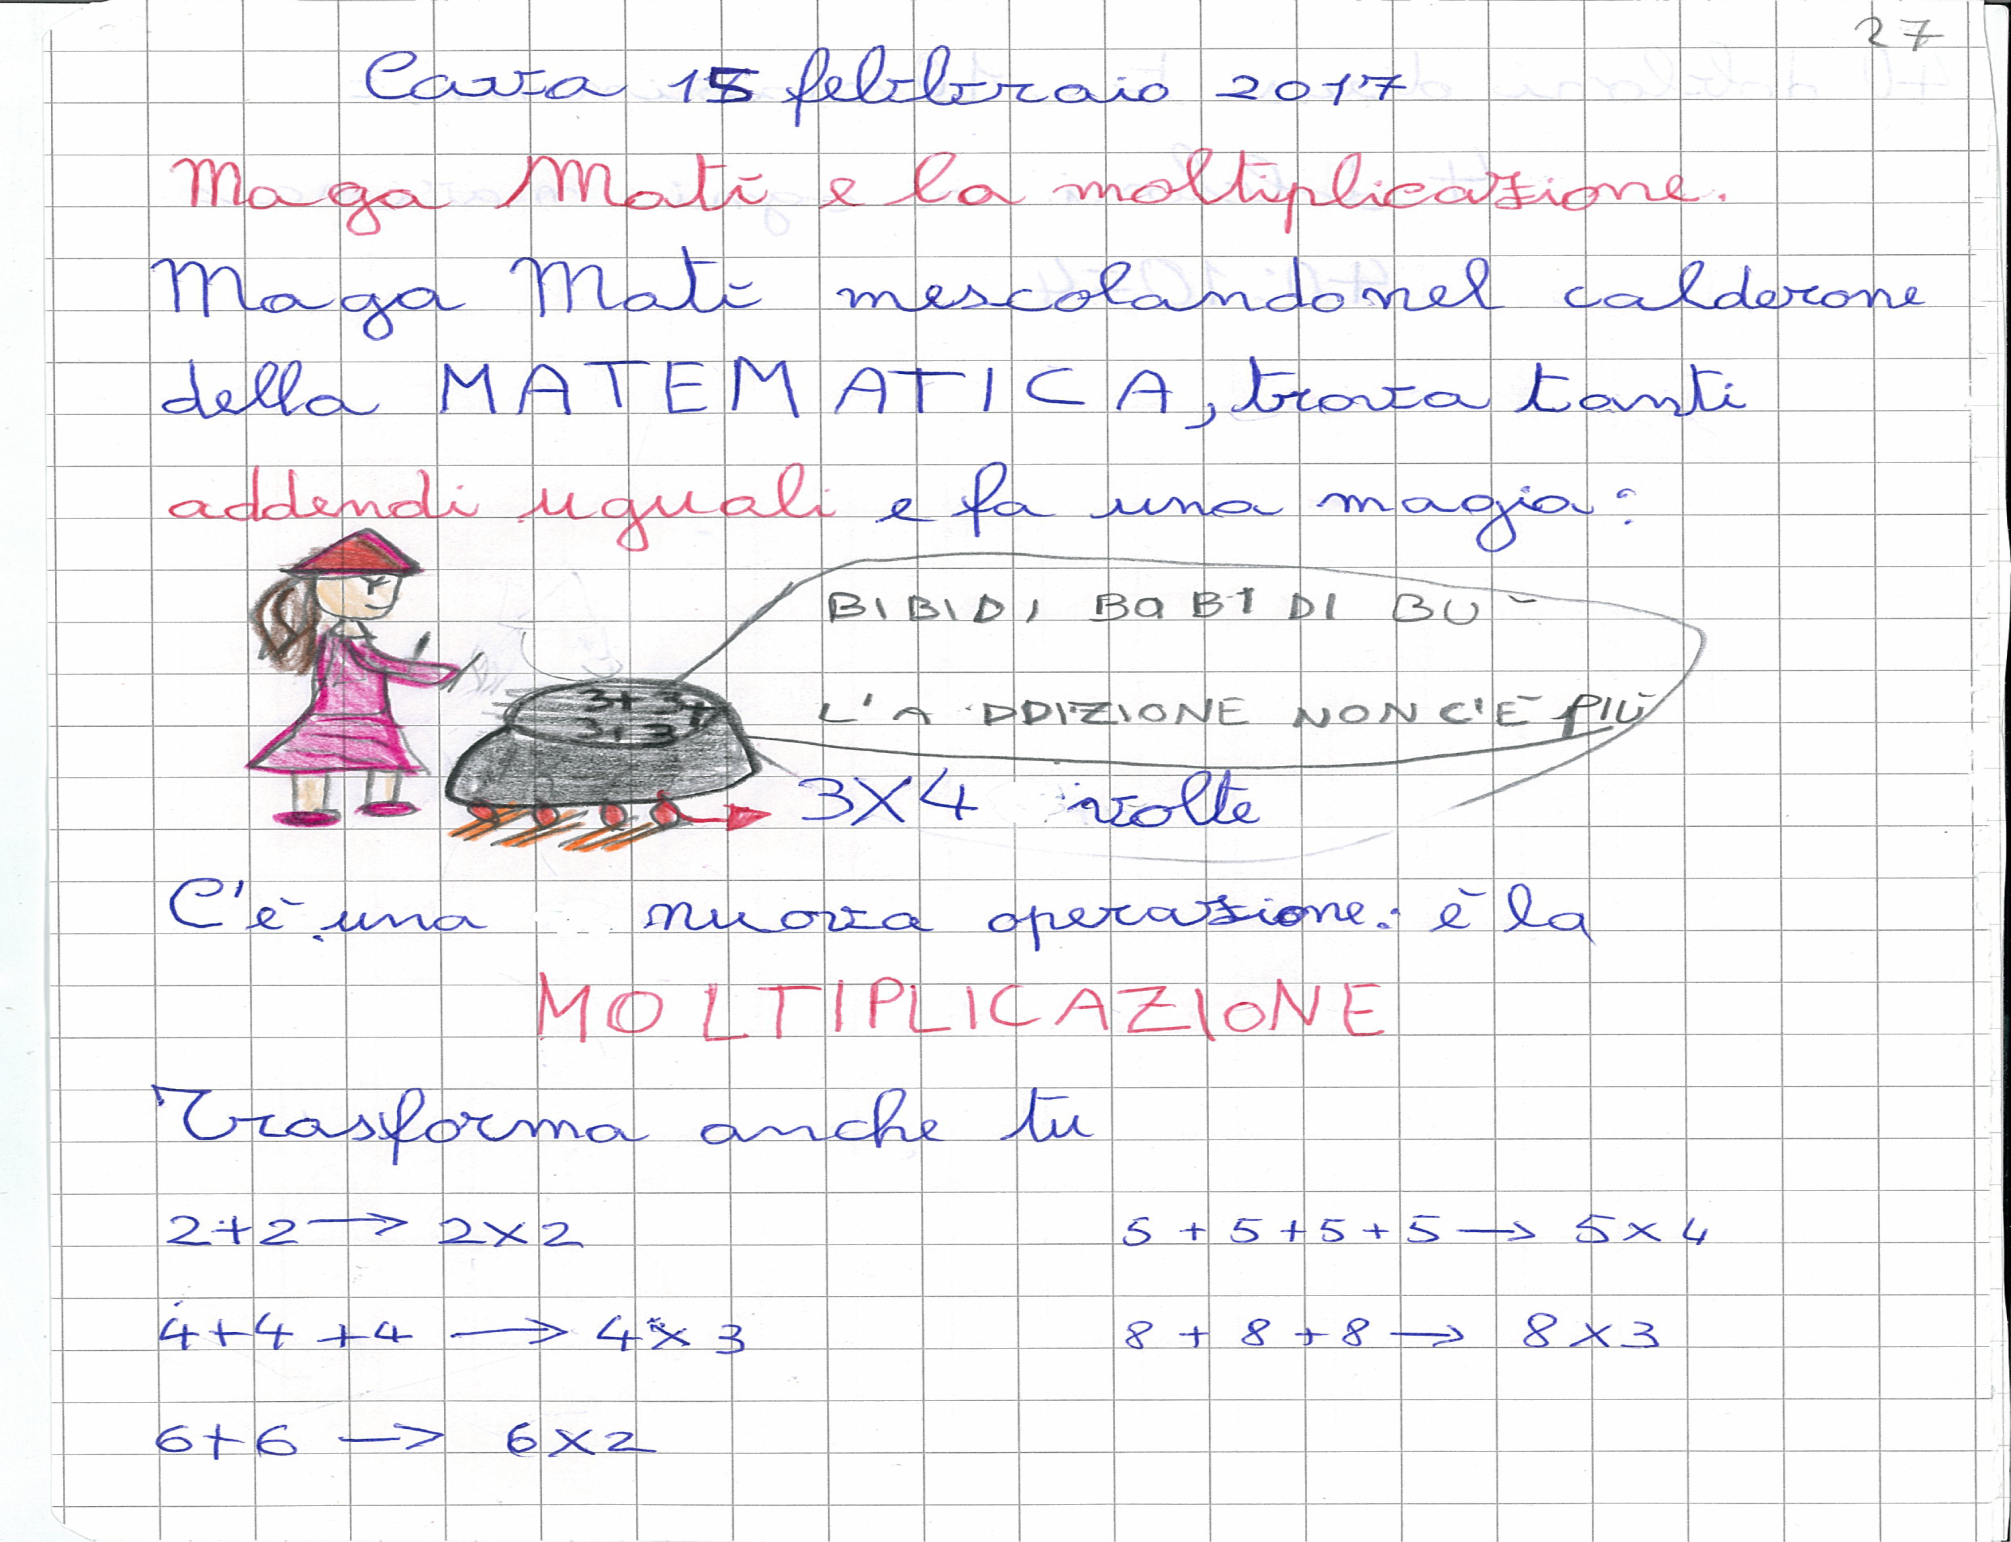 27
Cava 15 febbraio 2017
Maga Mati e la moltiplicazione.
Maga Mati mescolando nel calderone
della MATEMATICA, trova tanti
addendi uguali e fa una magia:
BIBIDI BaBIDI BU
L'ADDIZIONE NON C'È PIÙ
3+3+
3+3
3X4 volte
C'è una nuova operazione: è la
MOLTIPLICAZIONE
Trasforma anche tu
2+2 → 2x2
5+5+5+5 → 5x4
4+4+4 → 4x3
8+8+8 → 8x3
6+6 → 6x2